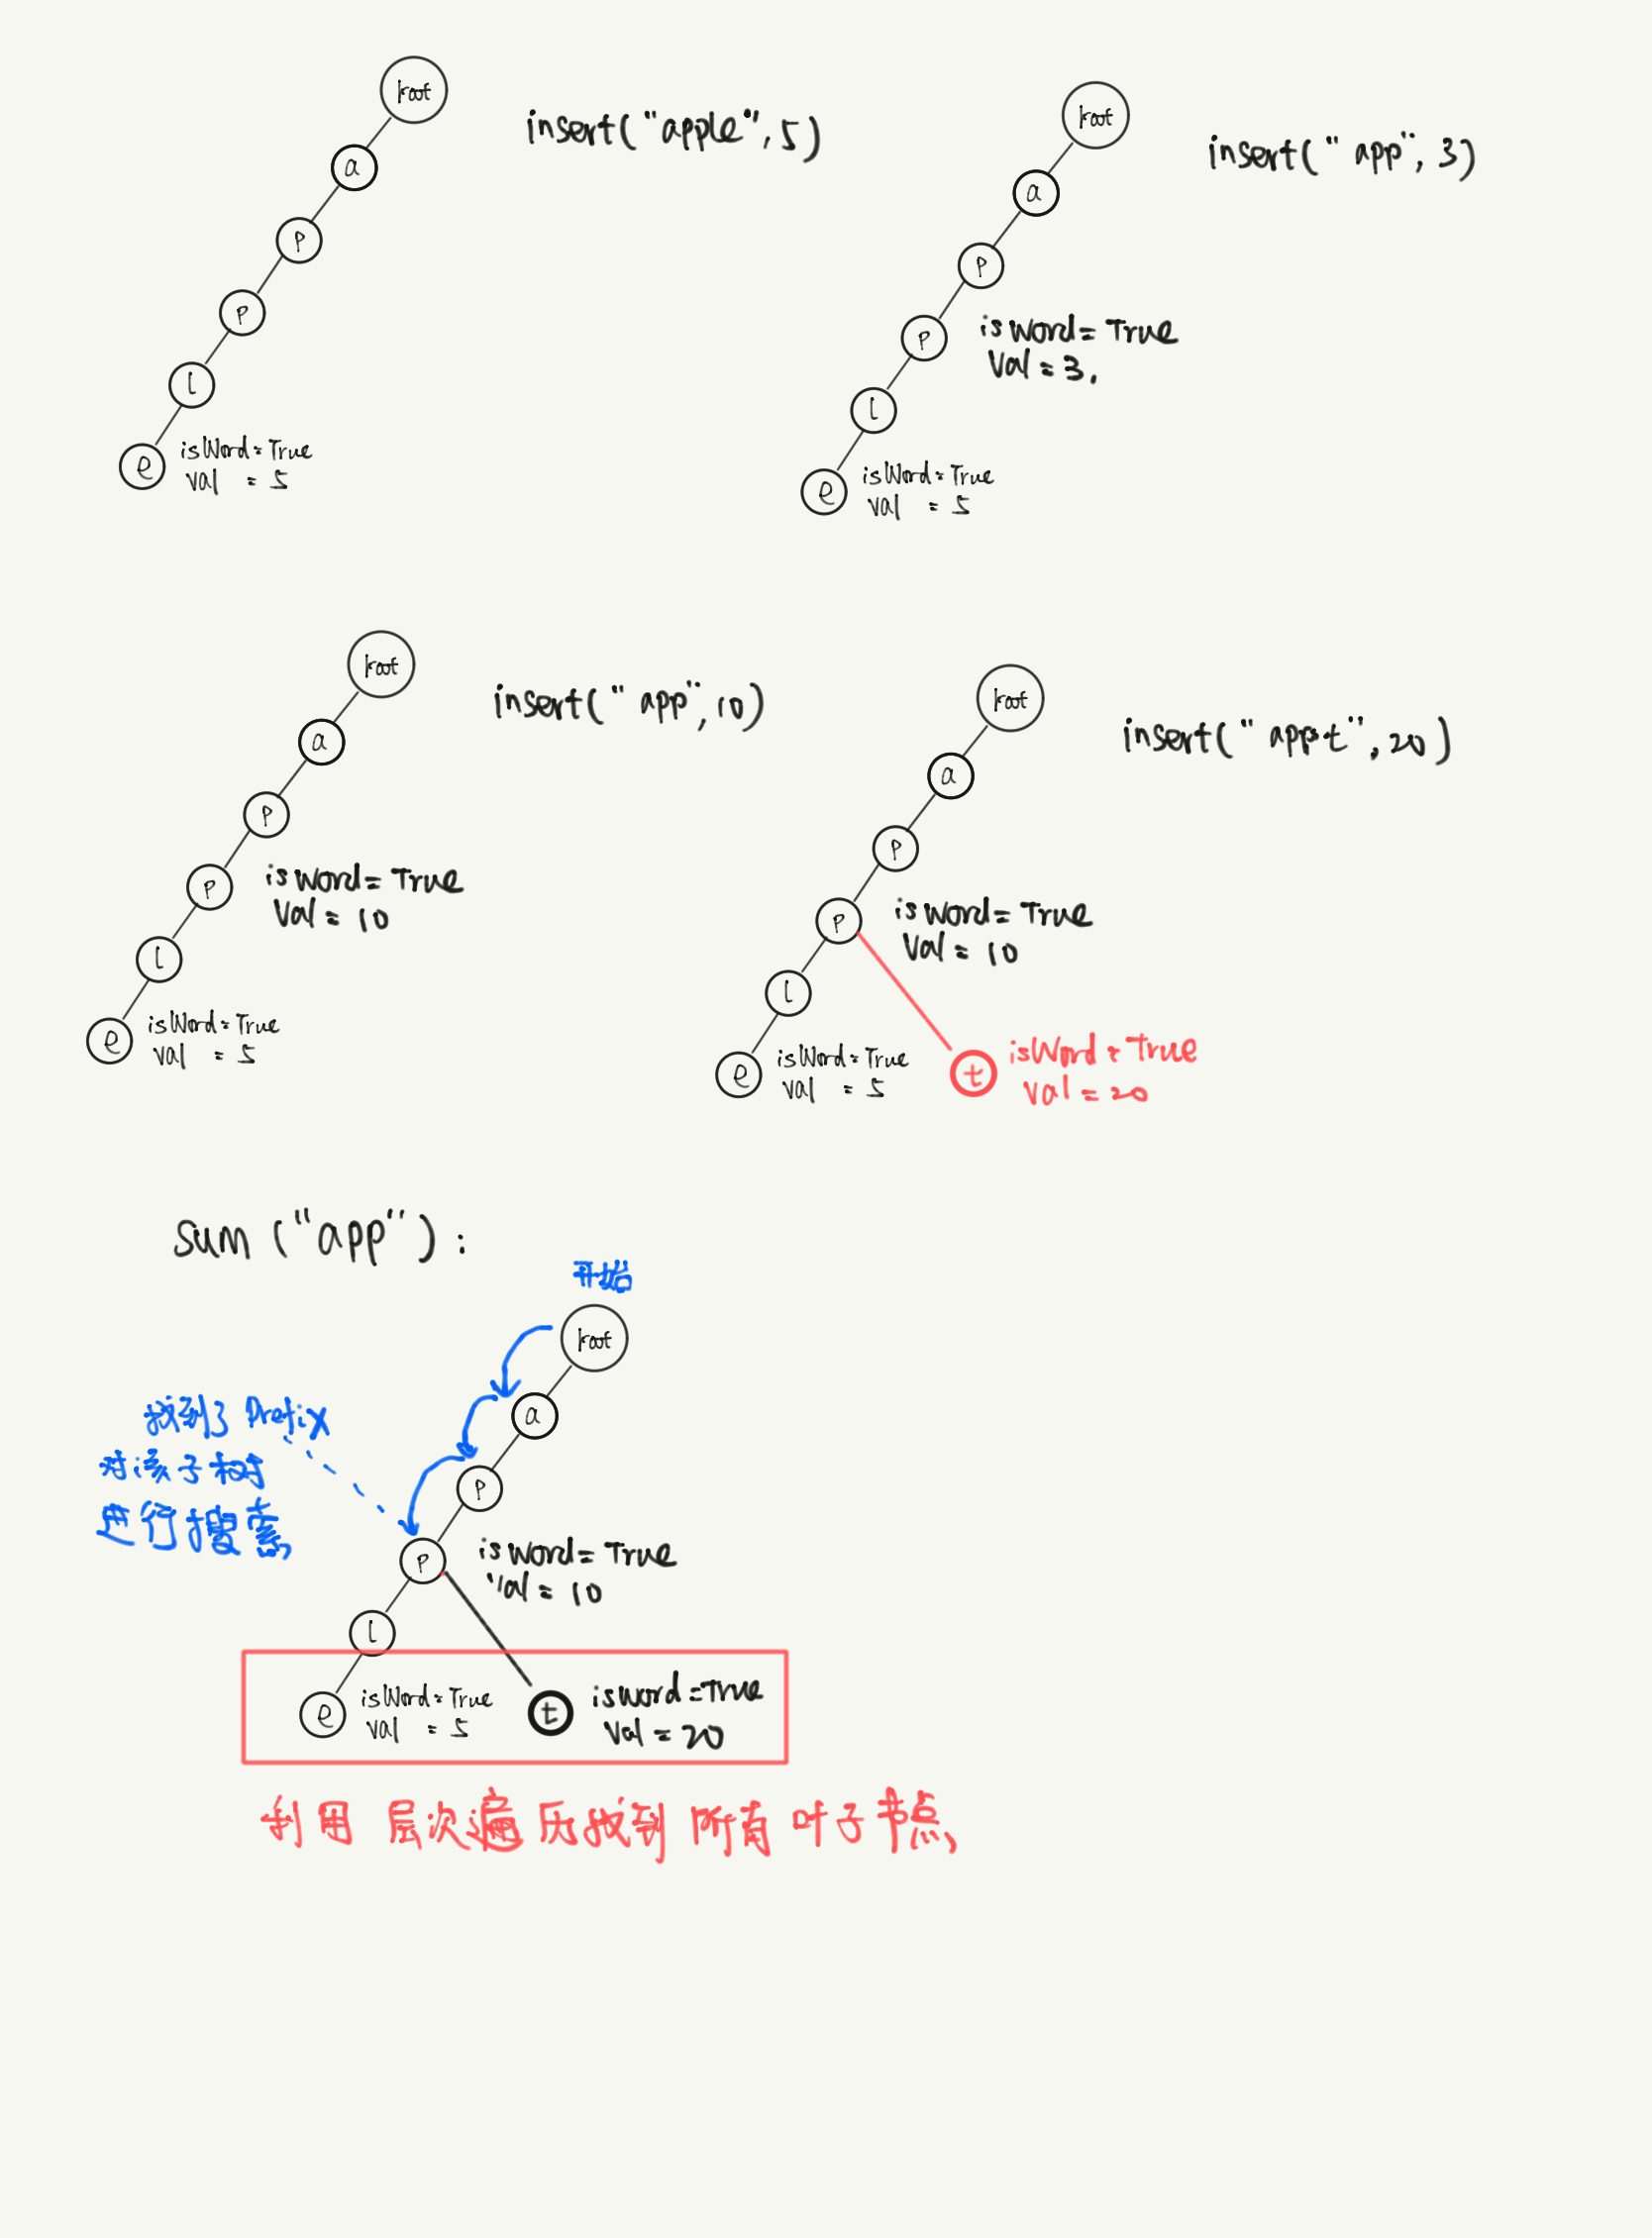 root
insert("apple",5)
a
p
p
l
e
isWord=True
val = 5
root
insert("app",3)
a
p
p
isWord=True
Val=3.
l
e
isWord=True
val = 5
root
insert("app",10)
a
p
p
isWord=True
Val=10
l
e
isWord=True
val = 5
root
insert("appt",20)
a
p
p
isWord=True
Val=10
l
e
isWord=True
val = 5
t
isWord=True
val=20
sum("app"):
开始
root
a
p
p
找到了Prefix
对该子树
进行搜索
isWord=True
Val=10
l
e
isWord=True
val = 5
t
isWord=True
Val=20
利用 层次遍历找到 所有 叶子节点